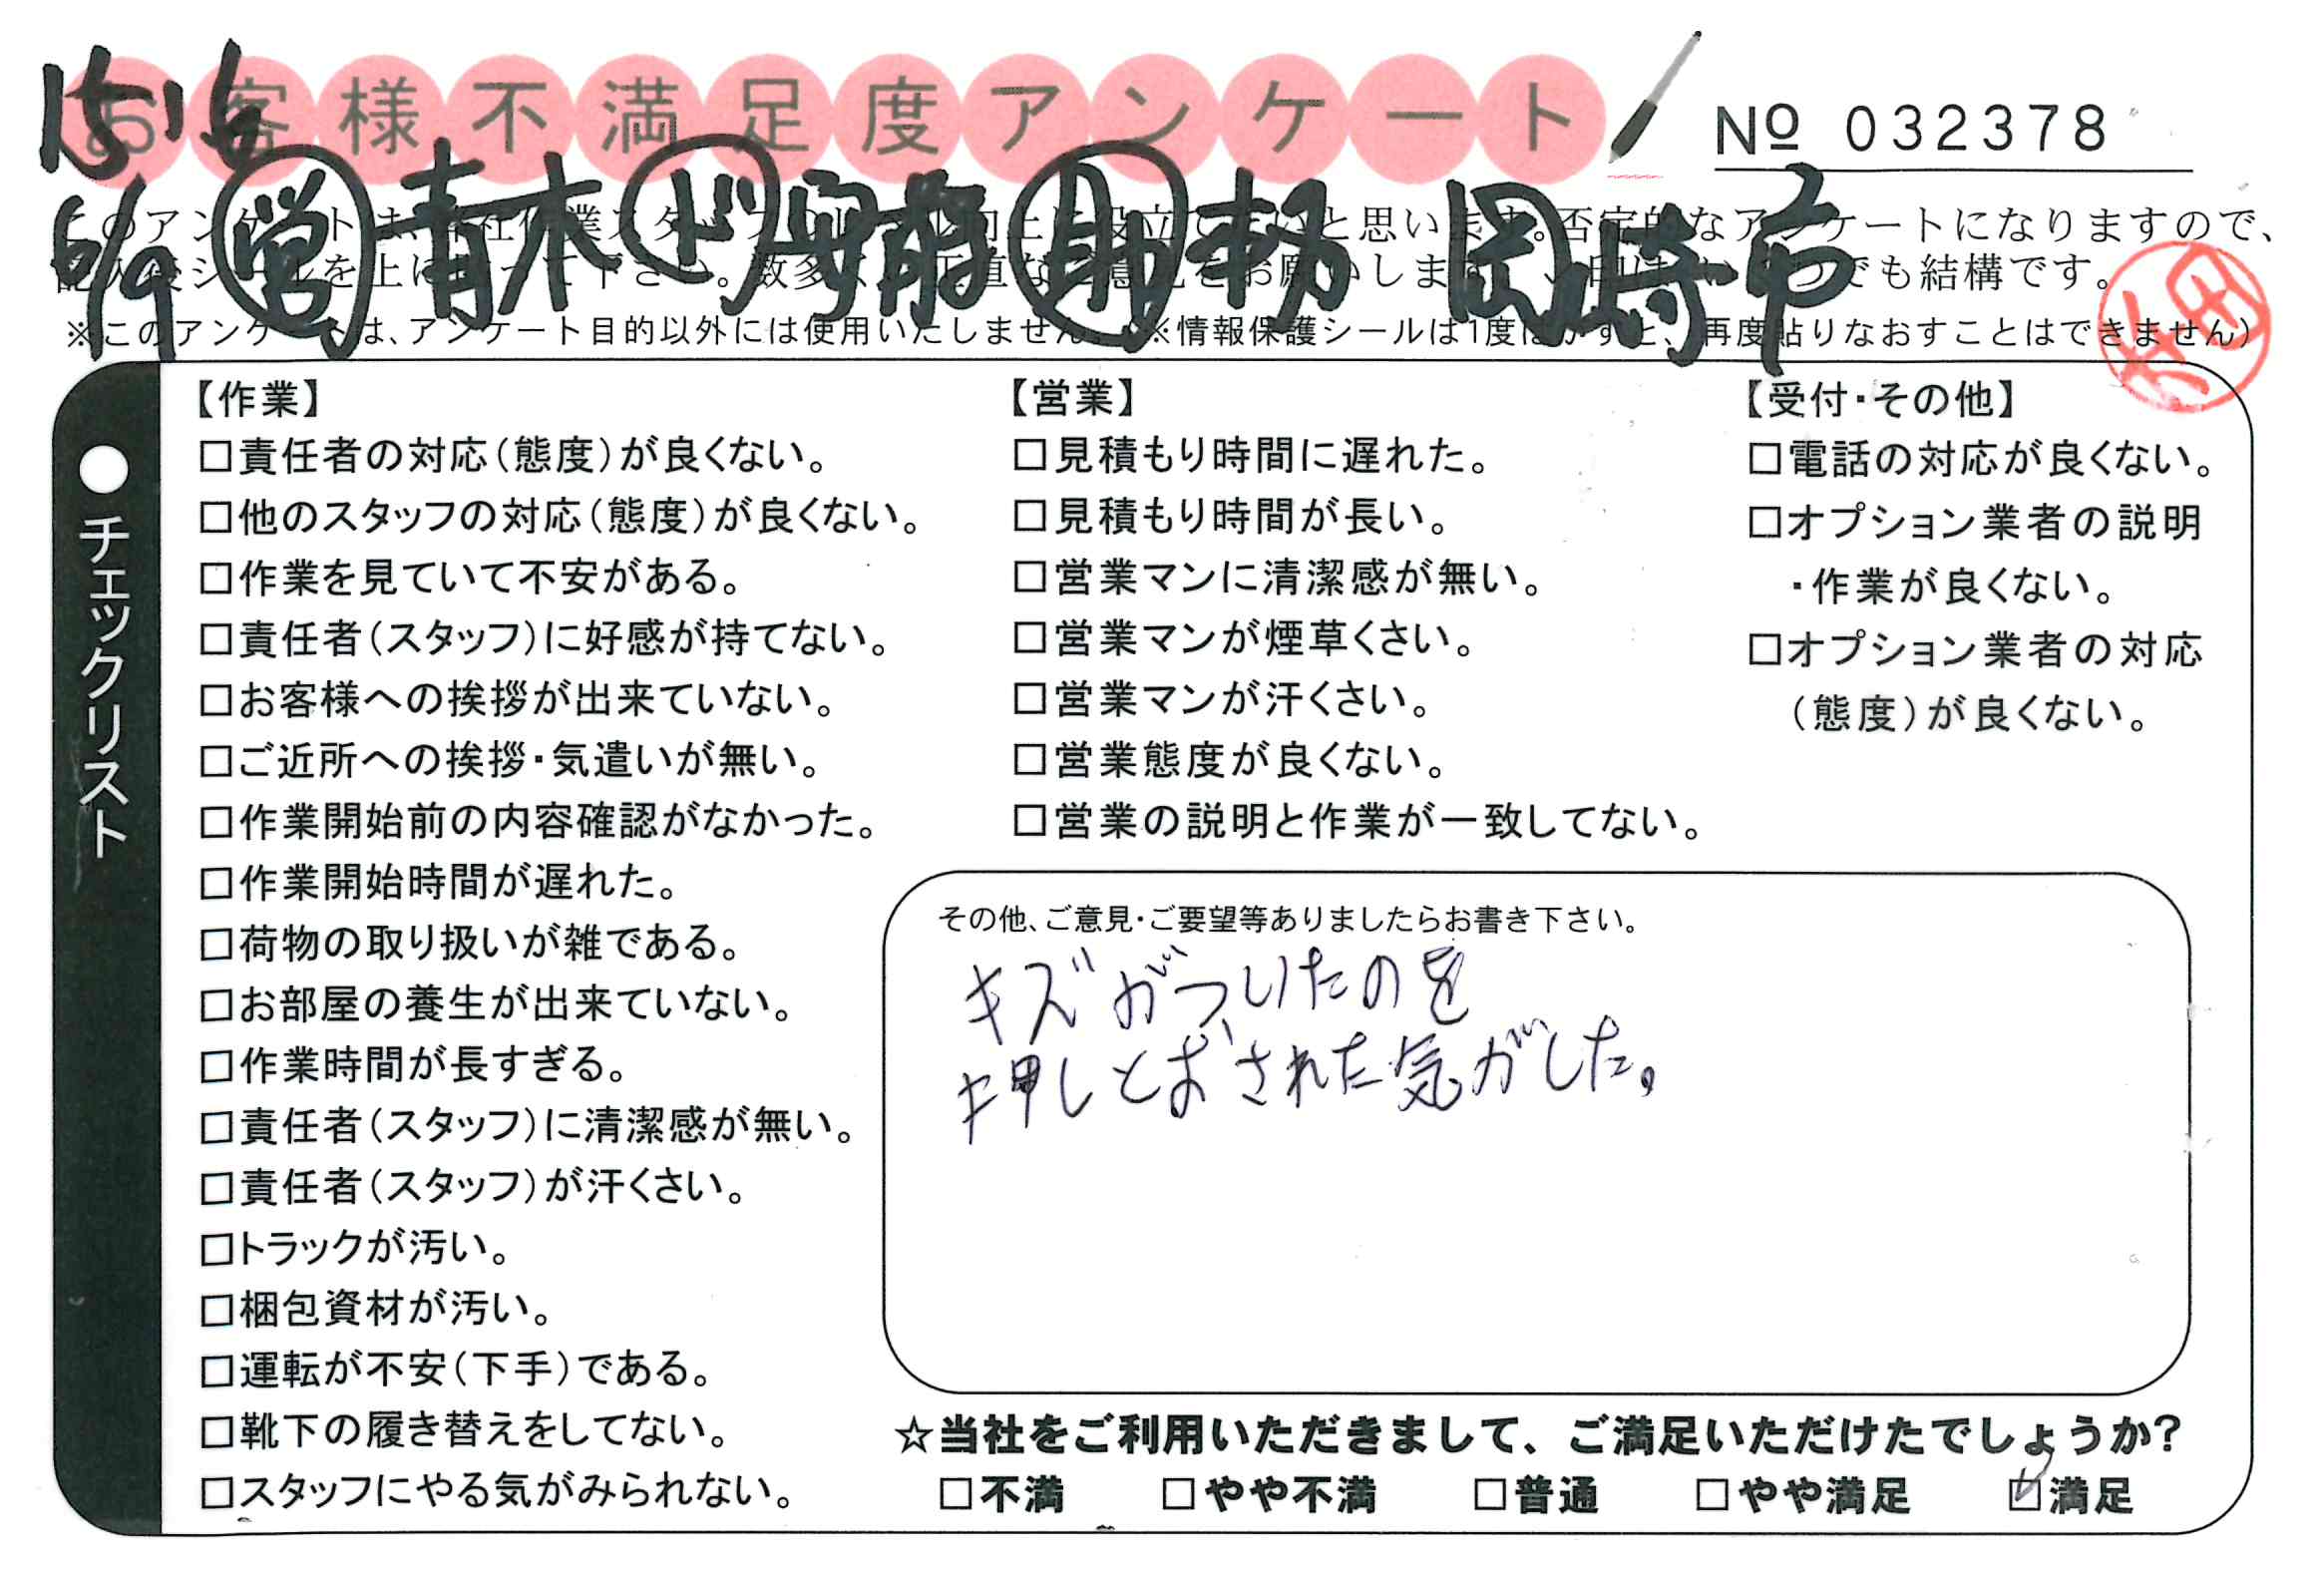 お客様不満足度アンケート
№ 032378
1516
6/9 営 青木 ド 安藤 助 岡崎市
このアンケートは、
と思います。否定的なアンケートになりますので、
でも結構です。
※このアンケートは、アンケート目的以外には使用いたしません。(※情報保護シールは1度はがすと、再度貼りなおすことはできません)
●チェックリスト
【作業】
□責任者の対応(態度)が良くない。
□他のスタッフの対応(態度)が良くない。
□作業を見ていて不安がある。
□責任者(スタッフ)に好感が持てない。
□お客様への挨拶が出来ていない。
□ご近所への挨拶・気遣いが無い。
□作業開始前の内容確認がなかった。
□作業開始時間が遅れた。
□荷物の取り扱いが雑である。
□お部屋の養生が出来ていない。
□作業時間が長すぎる。
□責任者(スタッフ)に清潔感が無い。
□責任者(スタッフ)が汗くさい。
□トラックが汚い。
□梱包資材が汚い。
□運転が不安(下手)である。
□靴下の履き替えをしてない。
□スタッフにやる気がみられない。
【営業】
□見積もり時間に遅れた。
□見積もり時間が長い。
□営業マンに清潔感が無い。
□営業マンが煙草くさい。
□営業マンが汗くさい。
□営業態度が良くない。
□営業の説明と作業が一致してない。
【受付・その他】
□電話の対応が良くない。
□オプション業者の説明
・作業が良くない。
□オプション業者の対応
(態度)が良くない。
その他、ご意見・ご要望等ありましたらお書き下さい。
キズがついたのを
押しとおされた気がした。
☆当社をご利用いただきまして、ご満足いただけたでしょうか?
□不満 □やや不満 □普通 □やや満足 ☑満足